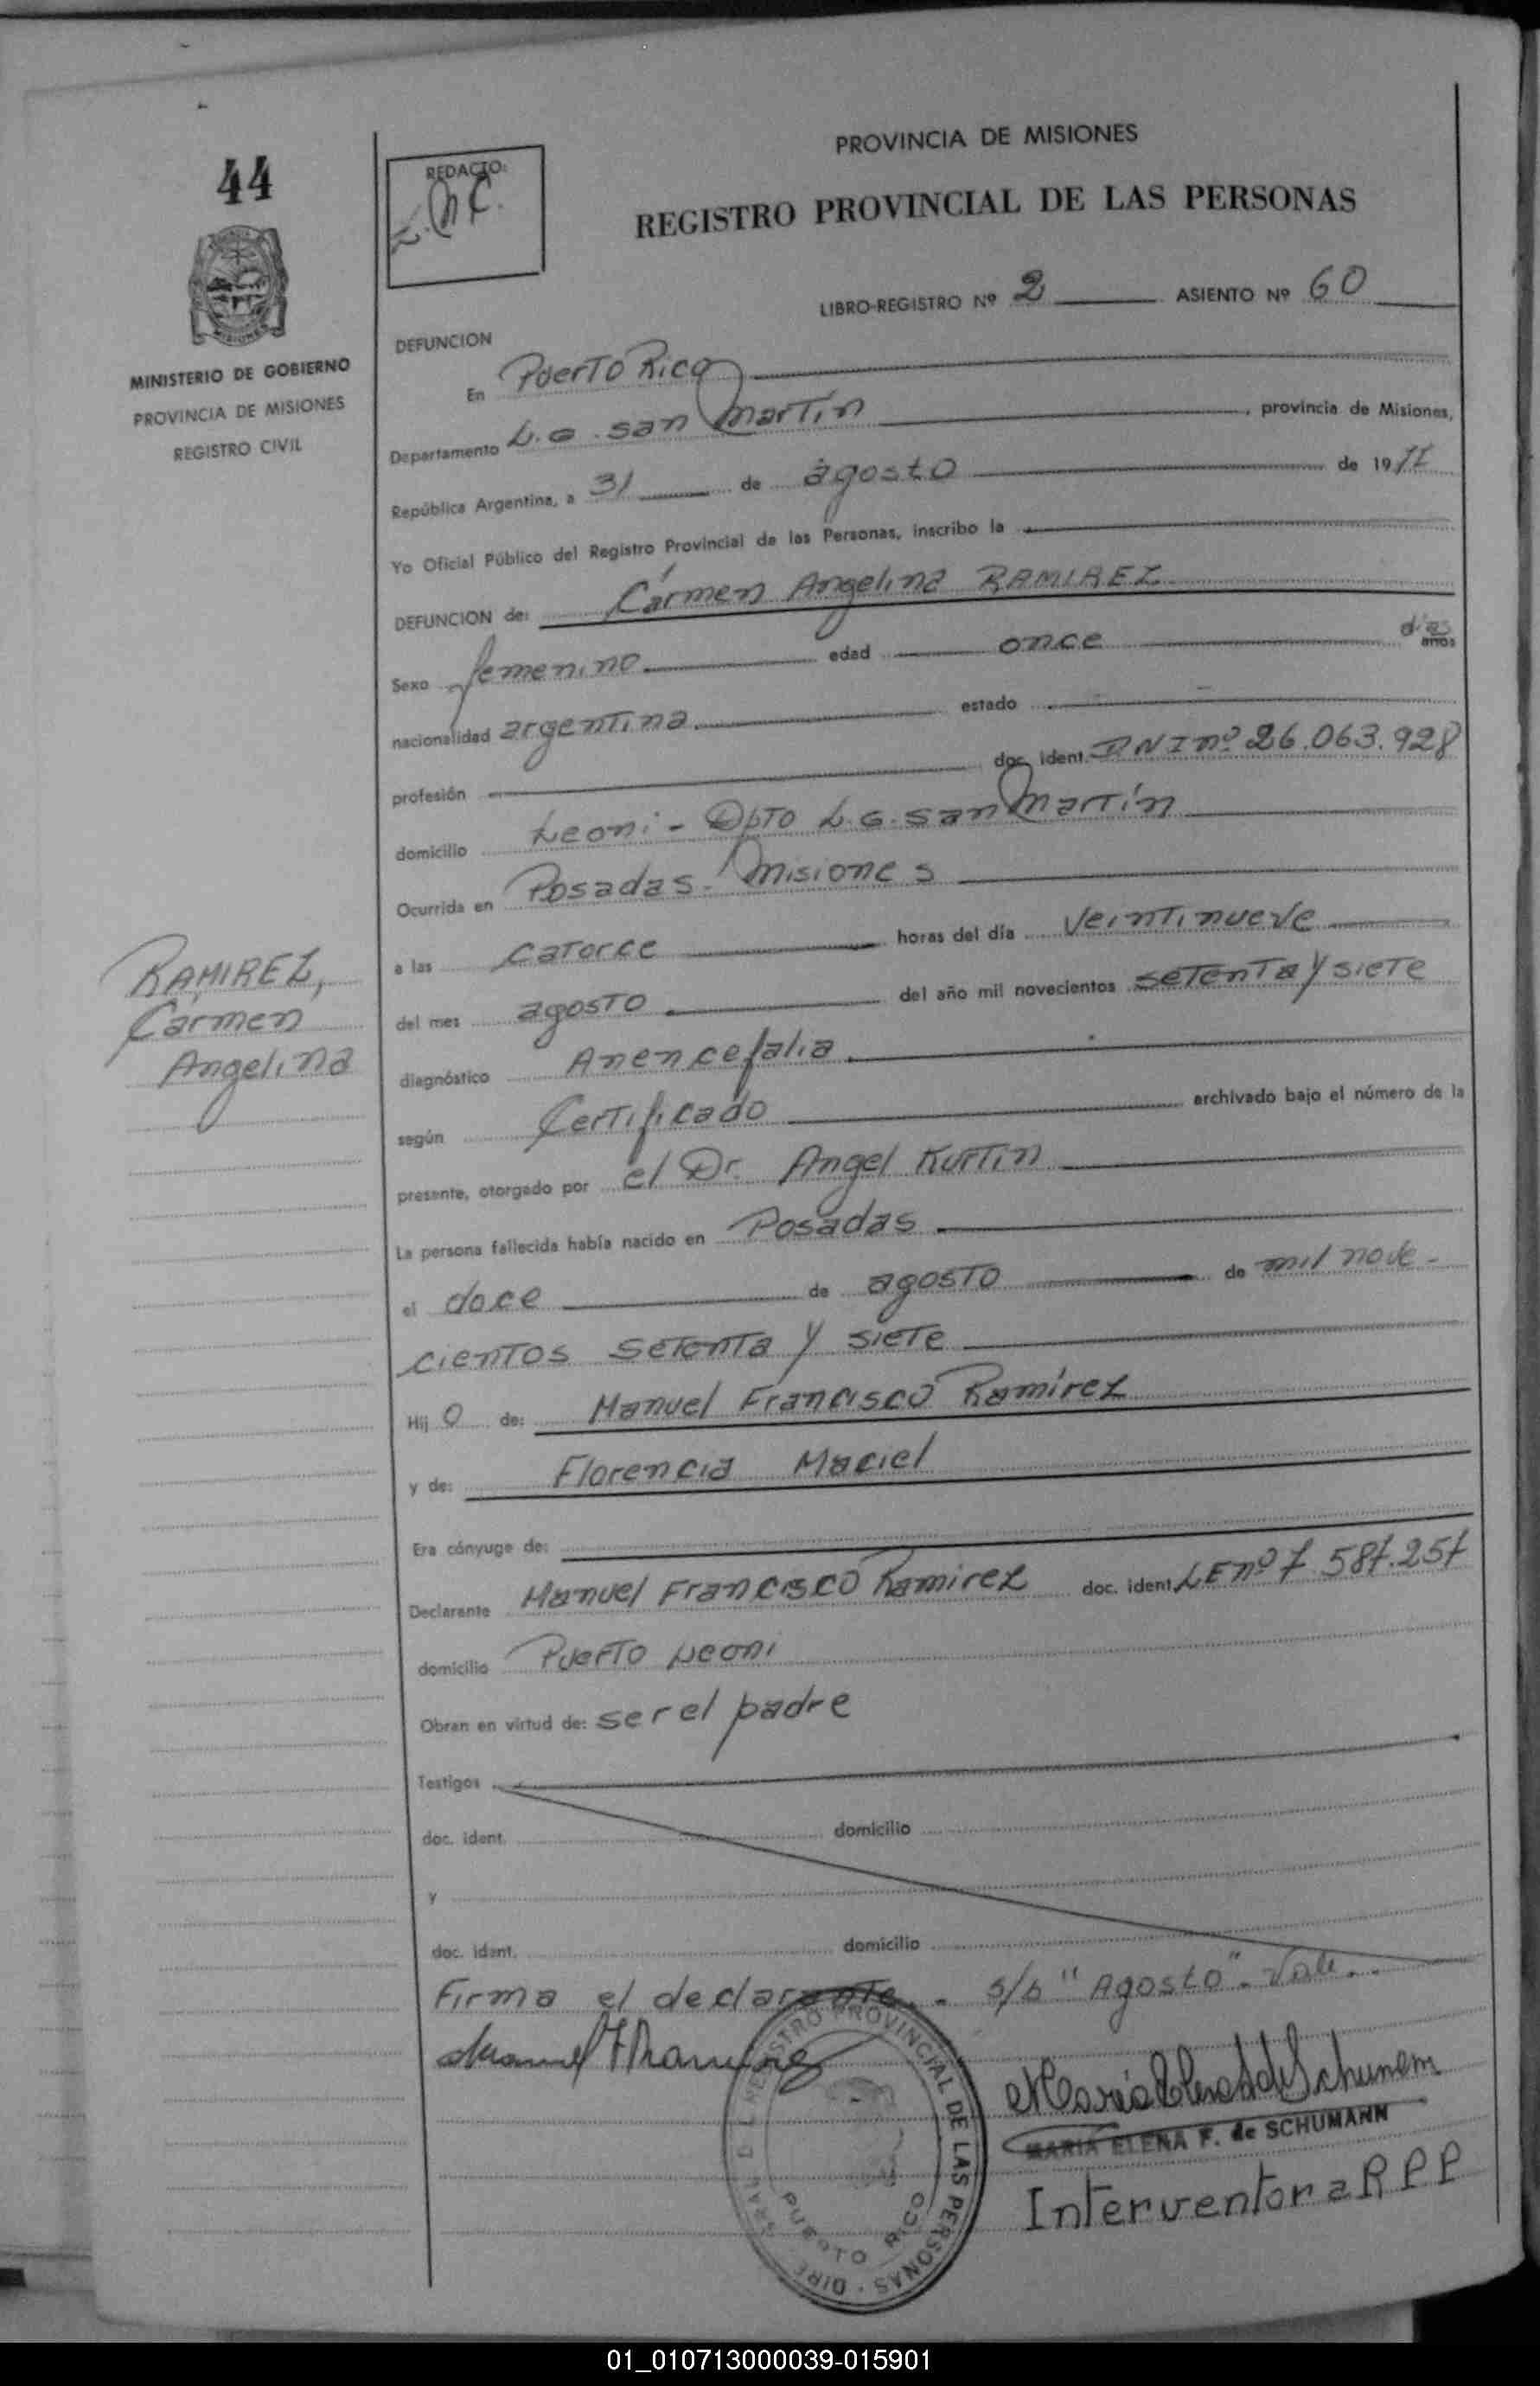 44
MINISTERIO DE GOBIERNO
PROVINCIA DE MISIONES
REGISTRO CIVIL
RAMIREZ,
Carmen
Angelina
REDACTO:
PROVINCIA DE MISIONES
REGISTRO PROVINCIAL DE LAS PERSONAS
LIBRO-REGISTRO Nº 2 ASIENTO Nº 60
DEFUNCION
En Puerto Rico
Departamento L.G. San Martín, provincia de Misiones,
República Argentina, a 31 de agosto de 1977
Yo Oficial Público del Registro Provincial de las Personas, inscribo la
DEFUNCION de: Cármen Angelina RAMIREZ
Sexo femenino edad once días años
nacionalidad argentina estado
profesión doc. ident. DNI nº 26.063.928
domicilio Leoni - Dpto L.G. San Martín
Ocurrida en Posadas - Misiones
a las catorce horas del día veintinueve
del mes agosto del año mil novecientos setenta y siete
diagnóstico Anencefalia
según Certificado archivado bajo el número de la
presente, otorgado por el Dr. Angel Kurtin
La persona fallecida había nacido en Posadas
el doce de agosto de mil nove-
cientos setenta y siete
Hij o de: Manuel Francisco Ramírez
y de: Florencia Maciel
Era cónyuge de:
Declarante Manuel Francisco Ramirez doc. ident. LE nº 7.587.257
domicilio Puerto Leoni
Obran en virtud de: ser el padre
Testigos
doc. ident. domicilio
y
doc. ident. domicilio
Firma el declarante. - s/b "Agosto". Vale.
MARIA ELENA F. de SCHUMANN
Interventora RPP
REGISTRO PROVINCIAL DE LAS PERSONAS
PUERTO RICO
01_010713000039-015901